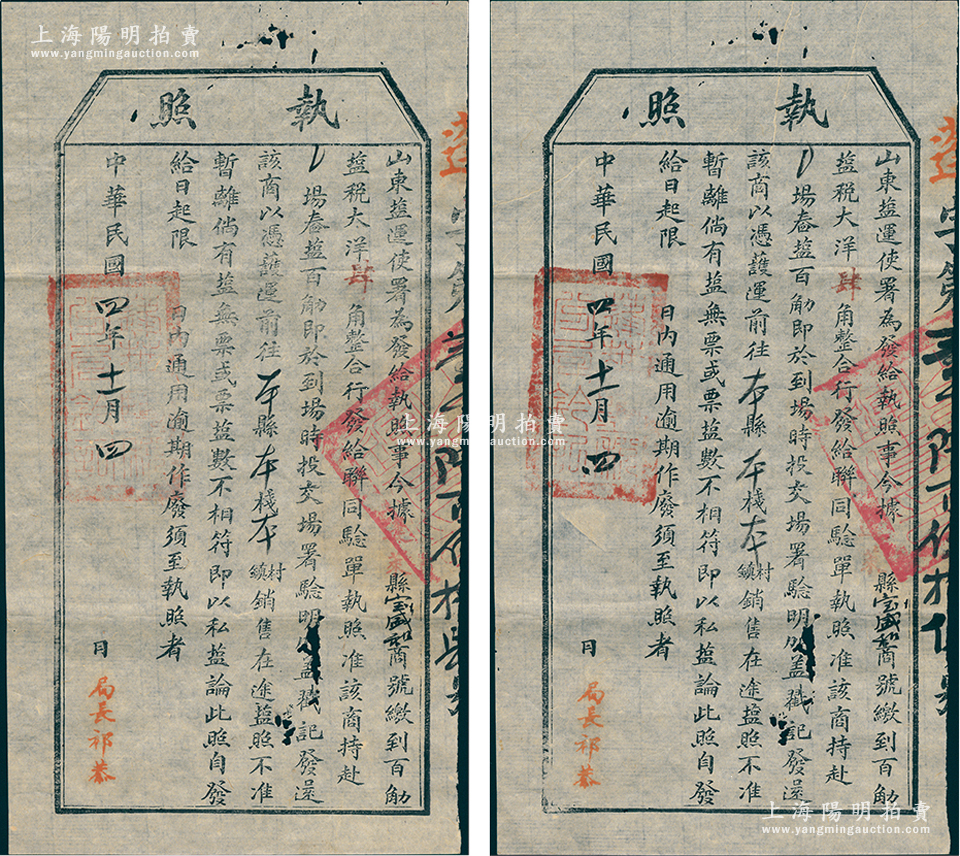 上海陽明拍賣
www.yangmingauction.com
執照
山東塩運使署為發給執照事今據 縣宝盛和商號繳到百觔
塩税大洋肆角整合行發給聯同驗單執照准該商持赴
場春塩百觔即於到場時投交場署驗明 蓋戳記發還
該商以憑護運前往本縣本棧本鎮村銷售在途塩照不准
暫離倘有塩無票或票塩數不相符即以私塩論此照自發
給日起限 日內通用逾期作廢須至執照者
中華民國四年十一月四日
局長祁恭
執照
山東塩運使署為發給執照事今據 縣宝盛和商號繳到百觔
塩税大洋肆角整合行發給聯同驗單執照准該商持赴
場春塩百觔即於到場時投交場署驗明 蓋戳記發還
該商以憑護運前往本縣本棧本鎮村銷售在途塩照不准
暫離倘有塩無票或票塩數不相符即以私塩論此照自發
給日起限 日內通用逾期作廢須至執照者
中華民國四年十一月四日
局長祁恭
上海陽明拍賣
www.yangmingauction.com
上海陽明拍賣
www.yangmingauction.com